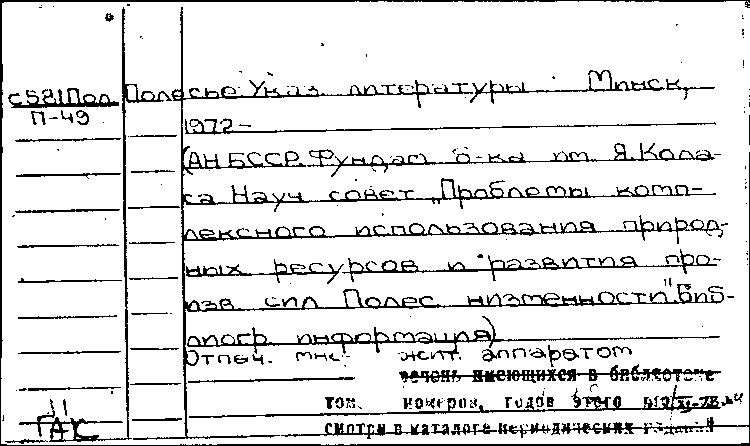 С581Пол Полесье. Указ. литературы. Минск,
П-49
1972-
(АН БССР. Фундам б-ка им. Я. Кола-
са Науч совет „Проблемы комп-
лексного использования природ-
ных ресурсов и развития про-
изв сил Полес. низменности". Биб-
лиогр. информация)
Отпеч. мн. жит. аппаратом
имеющихся в библиотеке
том. номеров, годов этого
смотри в каталоге периодических изданий
ГАК